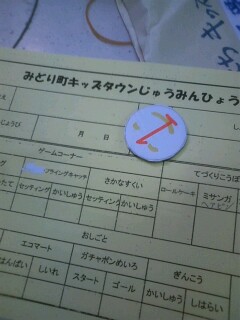 みどり町キッズタウンじゅうみんひょう
月 日
ゲームコーナー
てづくりこうぼ
フライングキャッチ
さかなすくい
ロールケーキ
ミサンガ
セッティング
かいしゅう
セッティング
かいしゅう
おしごと
エコマート
ガチャポンめいろ
ぎんこう
はんばい
しいれ
スタート
ゴール
かいしゅう
しはらい